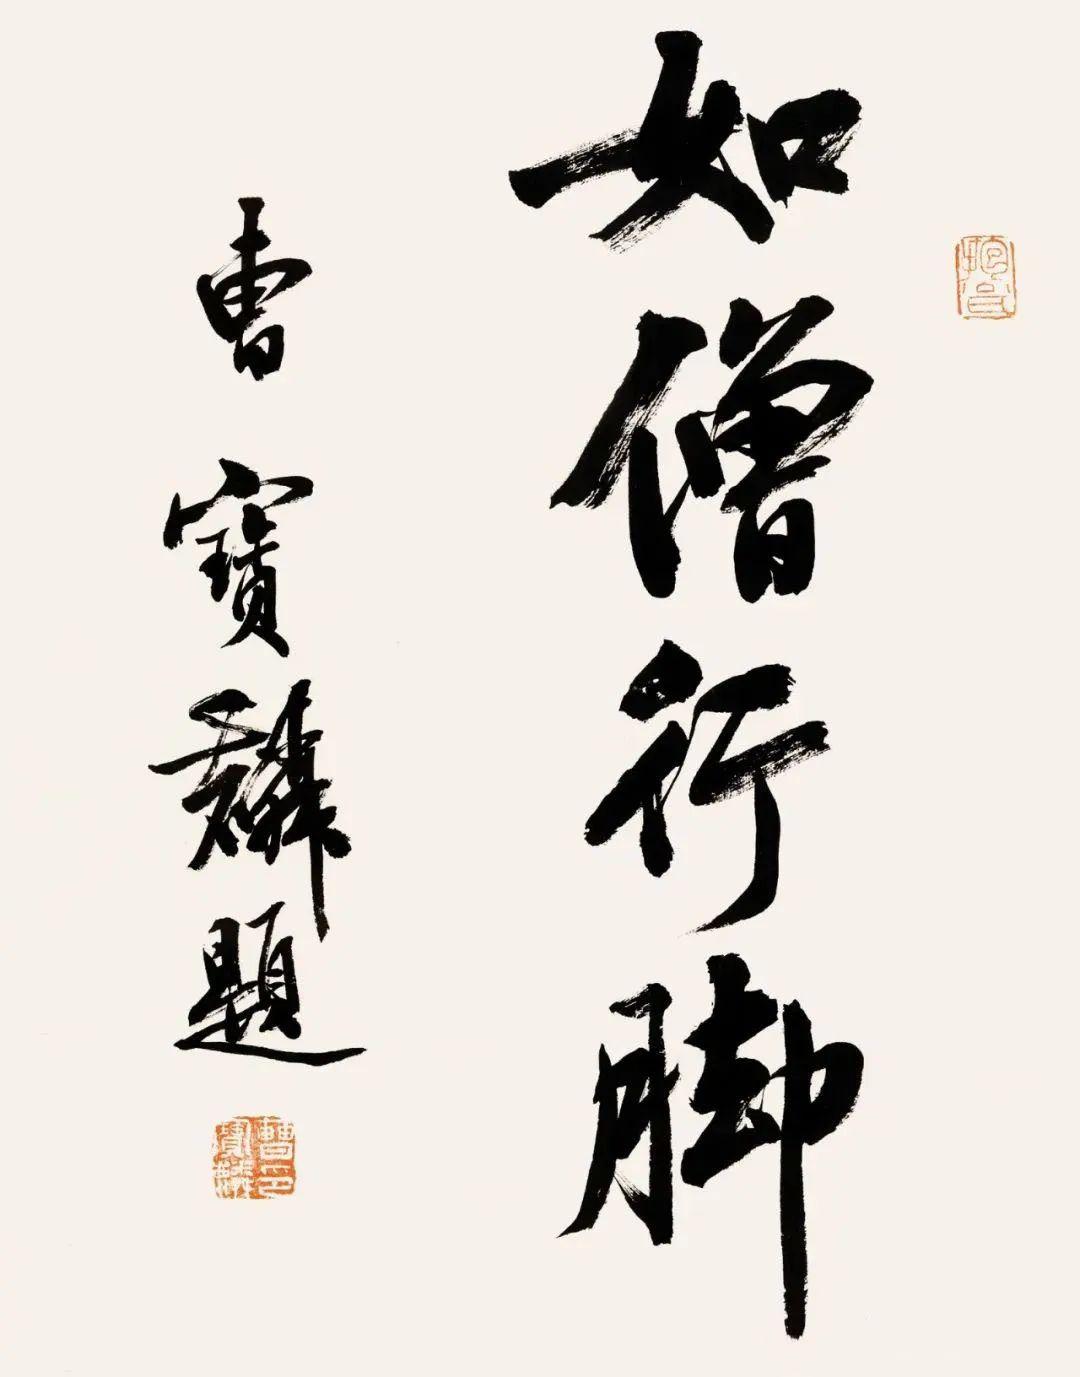 如僧行脚
曹寶麟題
曹印寶麟